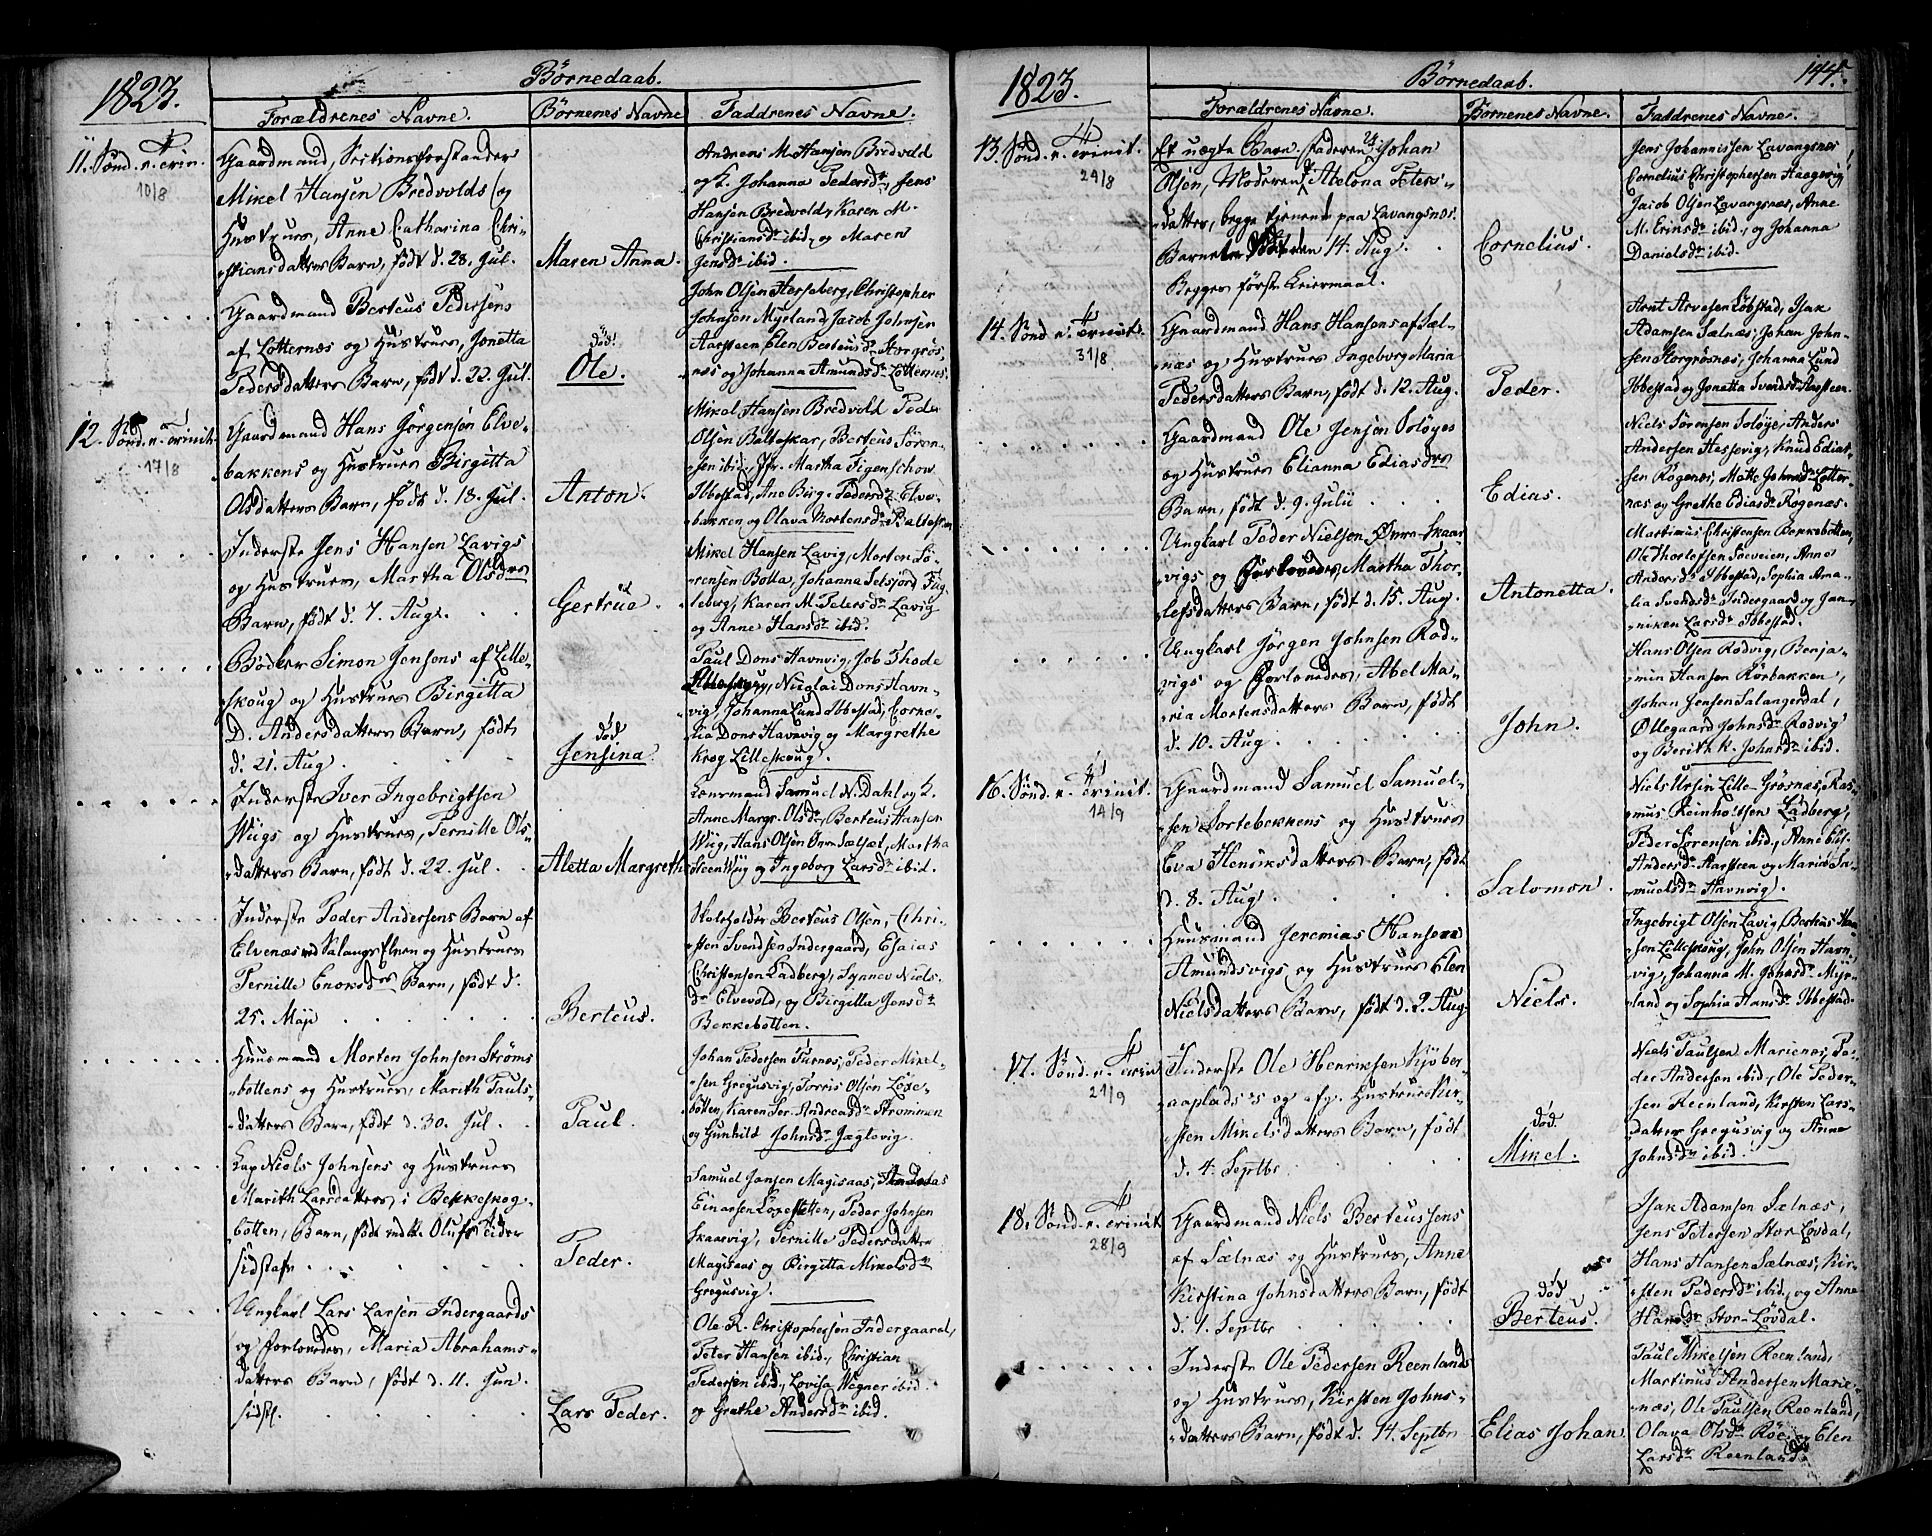 1823.
Børnedaab.
Forældrenes Navne.
Börnenes Navne
Faddrenes Navne.
11. Sønd. n. Trin.
10/8
Gaardmand, Sectionsforstander
Mikel Hansen Bredvolds og
Hustrues, Anne Catharina Chri-
stiansdatters Barn, født d. 28. Jul.
Maren Anna.
Andreas M. Hansen Bredvold
og K. Johanna Pedersdr, Jens
Hansen Bredvold, Karen M.
Christiansdr ibid, og Maren
Jensdr ibid.
Gaardmand Berteus Pedersens
af Løtternæs og Hustrues, Jonetta
Pedersdatters Barn, født d. 22. Jul.
død!
Ole.
John Olsen Hesseberg, Christopher
Johnsen Myrland, Jacob Johnsen
Aarsteen, Elen Berteusdr Storgrøs-
næs og Johanna Amundsdr Løtternes.
12. Sønd. n. Trinit.
17/8
Gaardmand Hans Jørgensen Elve-
bakkens og Hustrues Birgitta
Olsdatters Barn, født d. 18. Jul.
Anton.
Mikel Hansen Bredvold Peder
Olsen Balteskar, Berteus Søren-
sen ibid, Jfr. Martha Figenschow
Ibbestad, Ane Birg. Pedersdr Elve-
bakken og Olava Mortensdr Balteskar
Inderste Jens Hansen Lavigs
og Hustrues, Martha Olsdrs
Barn, født d. 7. Aug.
Gertrue.
Mikel Hansen Lavig, Morten Sö-
rensen Bolla, Johanna
leberg, Karen M. Petersdr Lavig
og Anne Hansdr ibid.
Bödker Simon Jensens af Lille-
skoug og Hustrues Birgitta
D. Andersdatters Barn, født
d. 21. Aug.
død
Jensina.
Paul Dons Havnvig, Job Thode
Nicolai Dons Havn-
vig, Johanna Lund Ibbestad, Corne-
lia Dons Havnvig og Margrethe
Krog Lilleskoug.
Inderste Iver Ingebrigtsen
Wiigs og Hustrues, Pernille Ols-
datters Barn, født d. 22. Jul.
Aletta Margreth
Lensmand Samuel N. Dahl og K.
Anne Margr. Olsdr, Berteus Hansen
Wiig, Hans Olsen Øvre Sælset, Martha
Steen Wiig og Ingeborg Larsdr ibid.
Inderste Peder Andersens Barn af
Elvenæs ved Salangs Elven og Hustrues
Pernille Enoksdrs Barn, født d.
25. Maji
Berteus.
Skoleholder Berteus Olsen, Chri-
sten Svendsen Indergaard, Esaias
Christensen Ladberg, Synnev Niels-
dr Elvevold, og Birgitta Jensdr
Bekkebotten.
Huusmand Morten Johnsen Strøms-
bottens og Hustrues, Marith Pauls-
datters Barn, født d. 30. Jul.
Paul.
Johan Pedersen Furnes, Peder Mikel-
sen Gregusvig, Torris Olsen Løxe-
botten, Karen Ser. Andreasdr Strømmen
og Gunhild Johnsdr Jæglevig.
Lap Niels Johnsens og Hustrues
Marith Larsdatters, i Bekkeskog-
botten, Barn, født ved St. Olufs Tider
sidstafv.
Peder.
Samuel Jonsen Magisaas, Andreas
Einarsen Løxebotten, Peder Johnsen
Skaarvig, Pernille Pedersdatter
Magisaas og Birgitta Mikelsdr
Gregusvig.
Ungkarl Lars Larsen Indergaards
og Forlovedes, Maria Abrahams-
datters Barn, født d. 11. Jun.
sidstl.
Lars Peder.
Ole R. Christophersen Indergaard,
Peter Hansen ibid., Christian
Pedersen ibid., Lovisa Wegner ibid.
og Grethe Andersdr ibid.
1823.
Børnedaab.
144.
Forældrenes Navne.
Børnenes Navne.
Faddrenes Navne.
13. Sønd. n. Trinit.
24/8
Et uægte Barn. Faderen: Johan
Olsen, Moderen: Abelona Peters-
datter, begge tienende paa Lavangsnes.
Barnet født den 14. Aug.
Begges første Leiermaal.
Cornelius.
Jens Johannissen Lavangsnes,
Cornelius Christophersen Haagevig,
Jacob Olsen Lavangsnæs, Anne
M. Erinsdr ibid., og Johanna
Danielsdr ibid.
14. Sønd. n. Trinit.
31/8
Gaardmand Hans Hansens af Sæl-
næs og Hustrues Ingeborg Maria
Pedersdatters Barn, født d. 12. Aug.
Peder.
Arnt Arvesen Løbstad, Isak
Adamsen Sælnæs, Johan John-
sen Storgrøsnæs, Johanna Lund
Ibbestad og Jonetta Svendsdr Aarsteen.
Gaardmand Ole Jensen Soløyes
og Hustrues Elianna Ediasdrs
Barn, født d. 9. Julii
Edias.
Niels Sørensen Soløye, Anders
Andersen Hessevig, Knud Edias-
sen Rogenæs, Matte Johnsdr Løtter-
næs og Grethe Ediasdr Rogenæs.
Ungkarl Peder Nielsen Øvre-Skaar-
vigs og Forlovedes Martha Thor-
lefsdatters Barn, født d. 15. Aug.
Antonetta.
Martinus Christensen Bekkebotten,
Ole Thorlefsen Sørveien, Anne
Andersdr Ibbestad, Sophia Ama-
lia Svendsdr Indergaard og Jan-
niken Larsdr Ibbestad.
Ungkarl Jörgen Johnsen Rød-
vigs og Forlovedes, Abel Ma-
ria Mortensdatters Barn, født
d. 10. Aug.
John.
Hans Olsen Rødvig, Benja-
min Hansen Rørbakken,
Johan Jensen Salangerdal,
Øllegaard Johnsdr Rødvig
og Berith K. Johnsdr ibid.
16. Sønd. n. Trinit.
14/9
Gaardmand Samuel Samuel-
sen Sortebekkens og Hustrues
Eva Henriksdatters Barn, født
d. 8. Aug.
Salomon.
Niels Ursin Lille-Grøsnæs, Ras-
mus Reinholtsen Ladberg,
Peder Sørensen ibid., Anne Else
Andersdr Aarsteen og Maria Sa-
muelsdr Havnvig.
Huusmand Jeremias Hansens
Amundsvigs og Hustrues Elen
Nielsdatters Barn, født d. 2. Aug.
Niels.
Ingebrigt Olsen Lavig, Berteus Han-
sen Lilleskoug, John Olsen Havn-
vig, Johanna M. Johnsdr Myr-
land og Sophia Hansdr Ibbestad.
17. Sønd. n. Trin.
21/9
Inderste Ole Henriksen Kjøber-
aaplads's og afg. Hustrue Kir-
sten Mikelsdatters Barn, født
d. 4. Septbr
død.
Mikel.
Niels Paulsen Marienæs, Pe-
der Andersen ibid., Ole Peder-
sen Reenland, Kirsten Lars-
datter Gregusvig og Anne
Johnsdr ibid.
18. Sønd. n. Trinit.
28/9
Gaardmand Niels Berteussens
af Sælnæs og Hustrues, Anne
Kirstina Johnsdatters Barn, født
d. 1. Septbr
død
Berteus.
Isak Adamsen Sælnæs,
Jens Petersen Stor-Løvdal,
Hans Hansen Sælnæs, Kir-
sten Pedersdr ibid., og Anne
Hansdr Stor-Løvdal.
Inderste Ole Pedersen Reenlands
og Hustrues, Kirsten Johns-
datters Barn, født d. 14. Septbr
Elias Johan.
Paul Mikelsen Reenland,
Martinus Andersen Marie-
næs, Ole Paulsen Reenland,
Olava Olsdr Röe, og Elen
Larsdr Reenland.